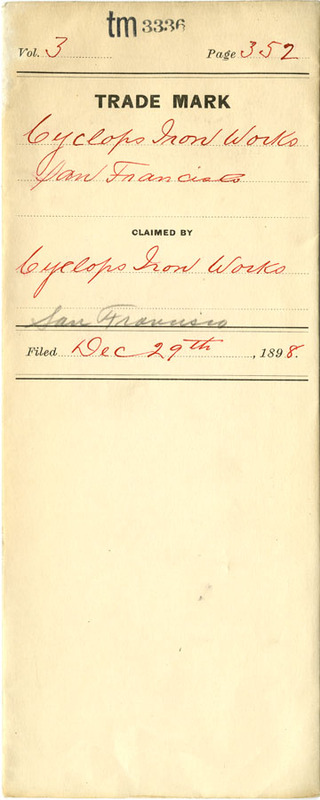 tm 3336
Vol. 3 Page 352
TRADE MARK
Cyclops Iron Works
San Francisco
CLAIMED BY
Cyclops Iron Works
San Francisco
Filed Dec 29th, 1898.